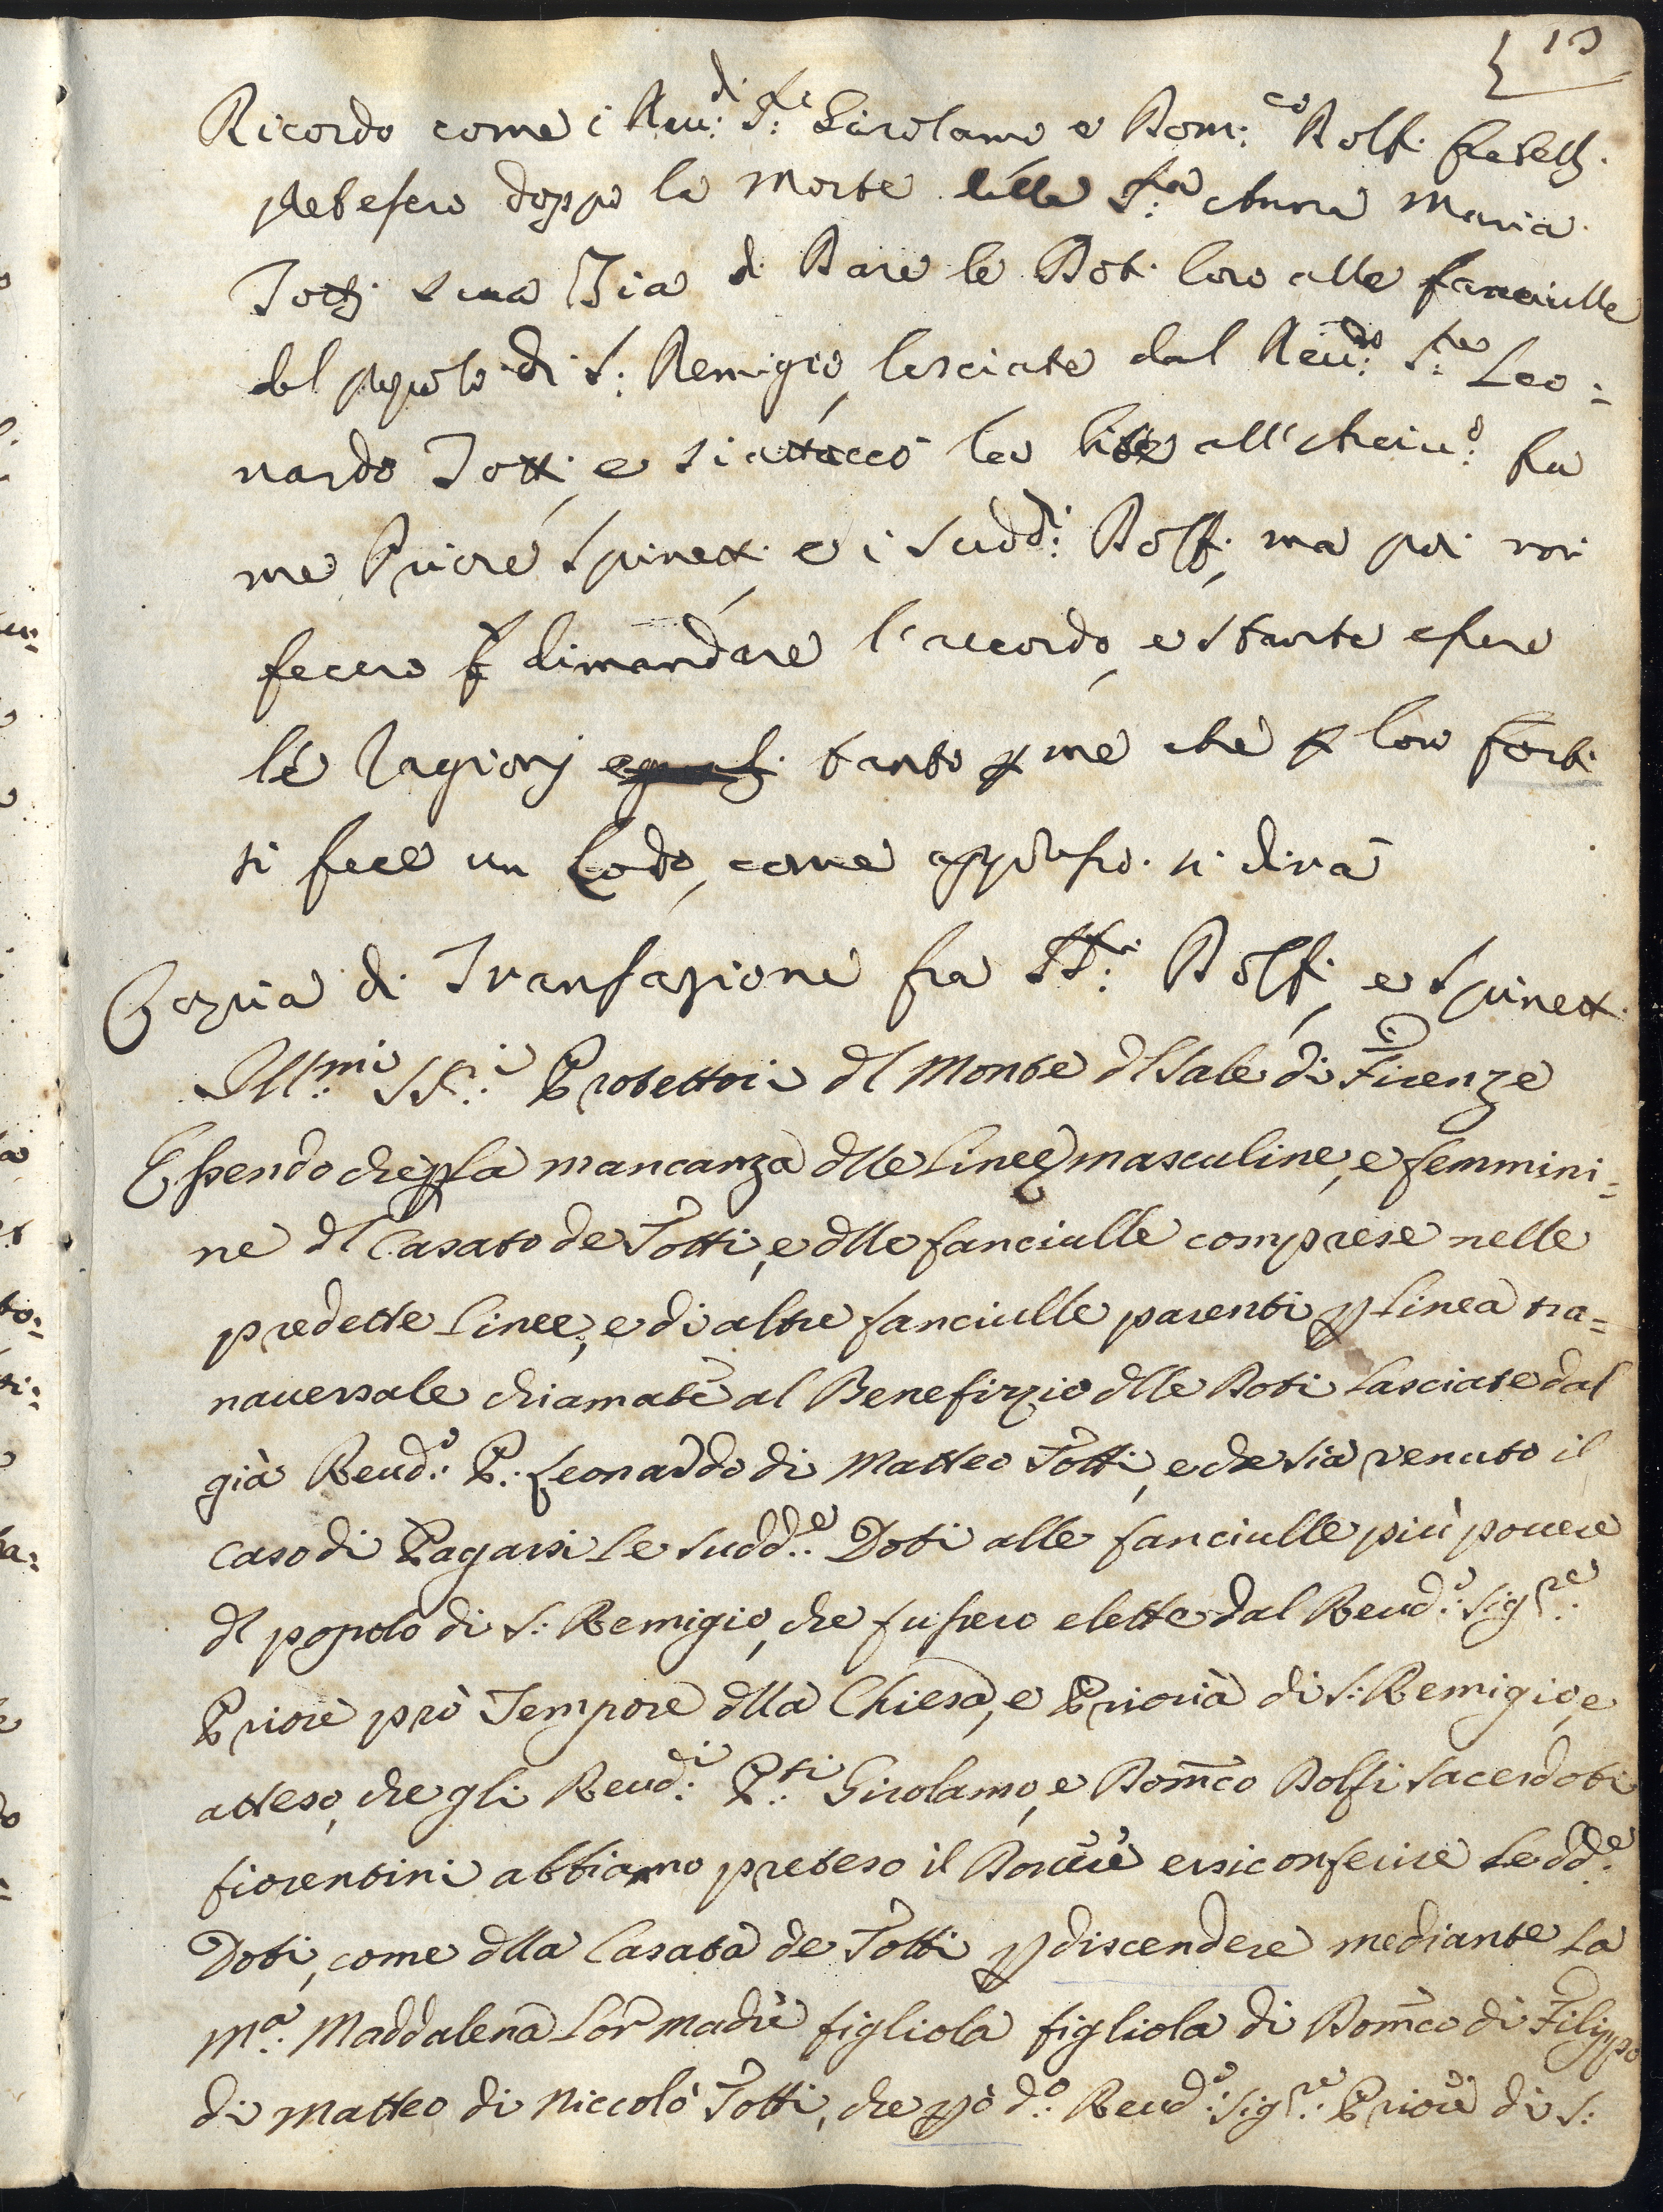 13
Ricordo come i Reu:di S:ri Girolamo e Dom:co Dolfi fratelli
pretesero doppo la morte della S:ra Anna Maria
Totti sua Zia di Dare le Doti loro alle fanciulle
del popolo di S: Remigio, lasciate dal Reu:do S:re Leo=
nardo Totti, e si attaccò la lite all'Arciu:o fra
me Priore Spinetti, e i sudd:i Dolfi, ma poi mi
fecero dimandare l'accordo, e stante essere
le ragioni tanto p me che p loro forti
si fece un Lodo, come appresso si dirà
Coppia di Transazione fra SS:ri Dolfi, e Spinetti
Ill:mi SS:ri Protettori dl Monte dl Sale di Firenze
Essendo che p la mancanza dlle Linee masculine, e femmini=
ne dl Casato de Totti, e dlle fanciulle comprese nelle
predette Linee, e di altre fanciulle parenti p Linea tra=
nauersale chiamate al Benefizzio dlle Doti Lasciate dal
già Reud:o P: Leonardo di Matteo Totti, e che sia venuto il
caso di Pagarsi Le sudd:e Doti alle fanciulle più pouere
dl popolo di S: Remigio, che fussero elette dal Reud:o Sig:re
Priore prò Tempore dlla Chiesa, e Prioria di S: Remigio, e
atteso, che gli Reud:i P:ti Girolamo, e Dom̃co Dolfi sacerdoti
fiorentini abbiamo preteso il Douere ersi conferire Le dd:e
Doti, come dlla Casata de Totti p discendere mediante La
M:a Maddalena Lor madre figliola figliola di Dom̃co di Filippo
di Matteo di Niccolò Totti, che però d:o Reud:o Sig:re Priore di S: